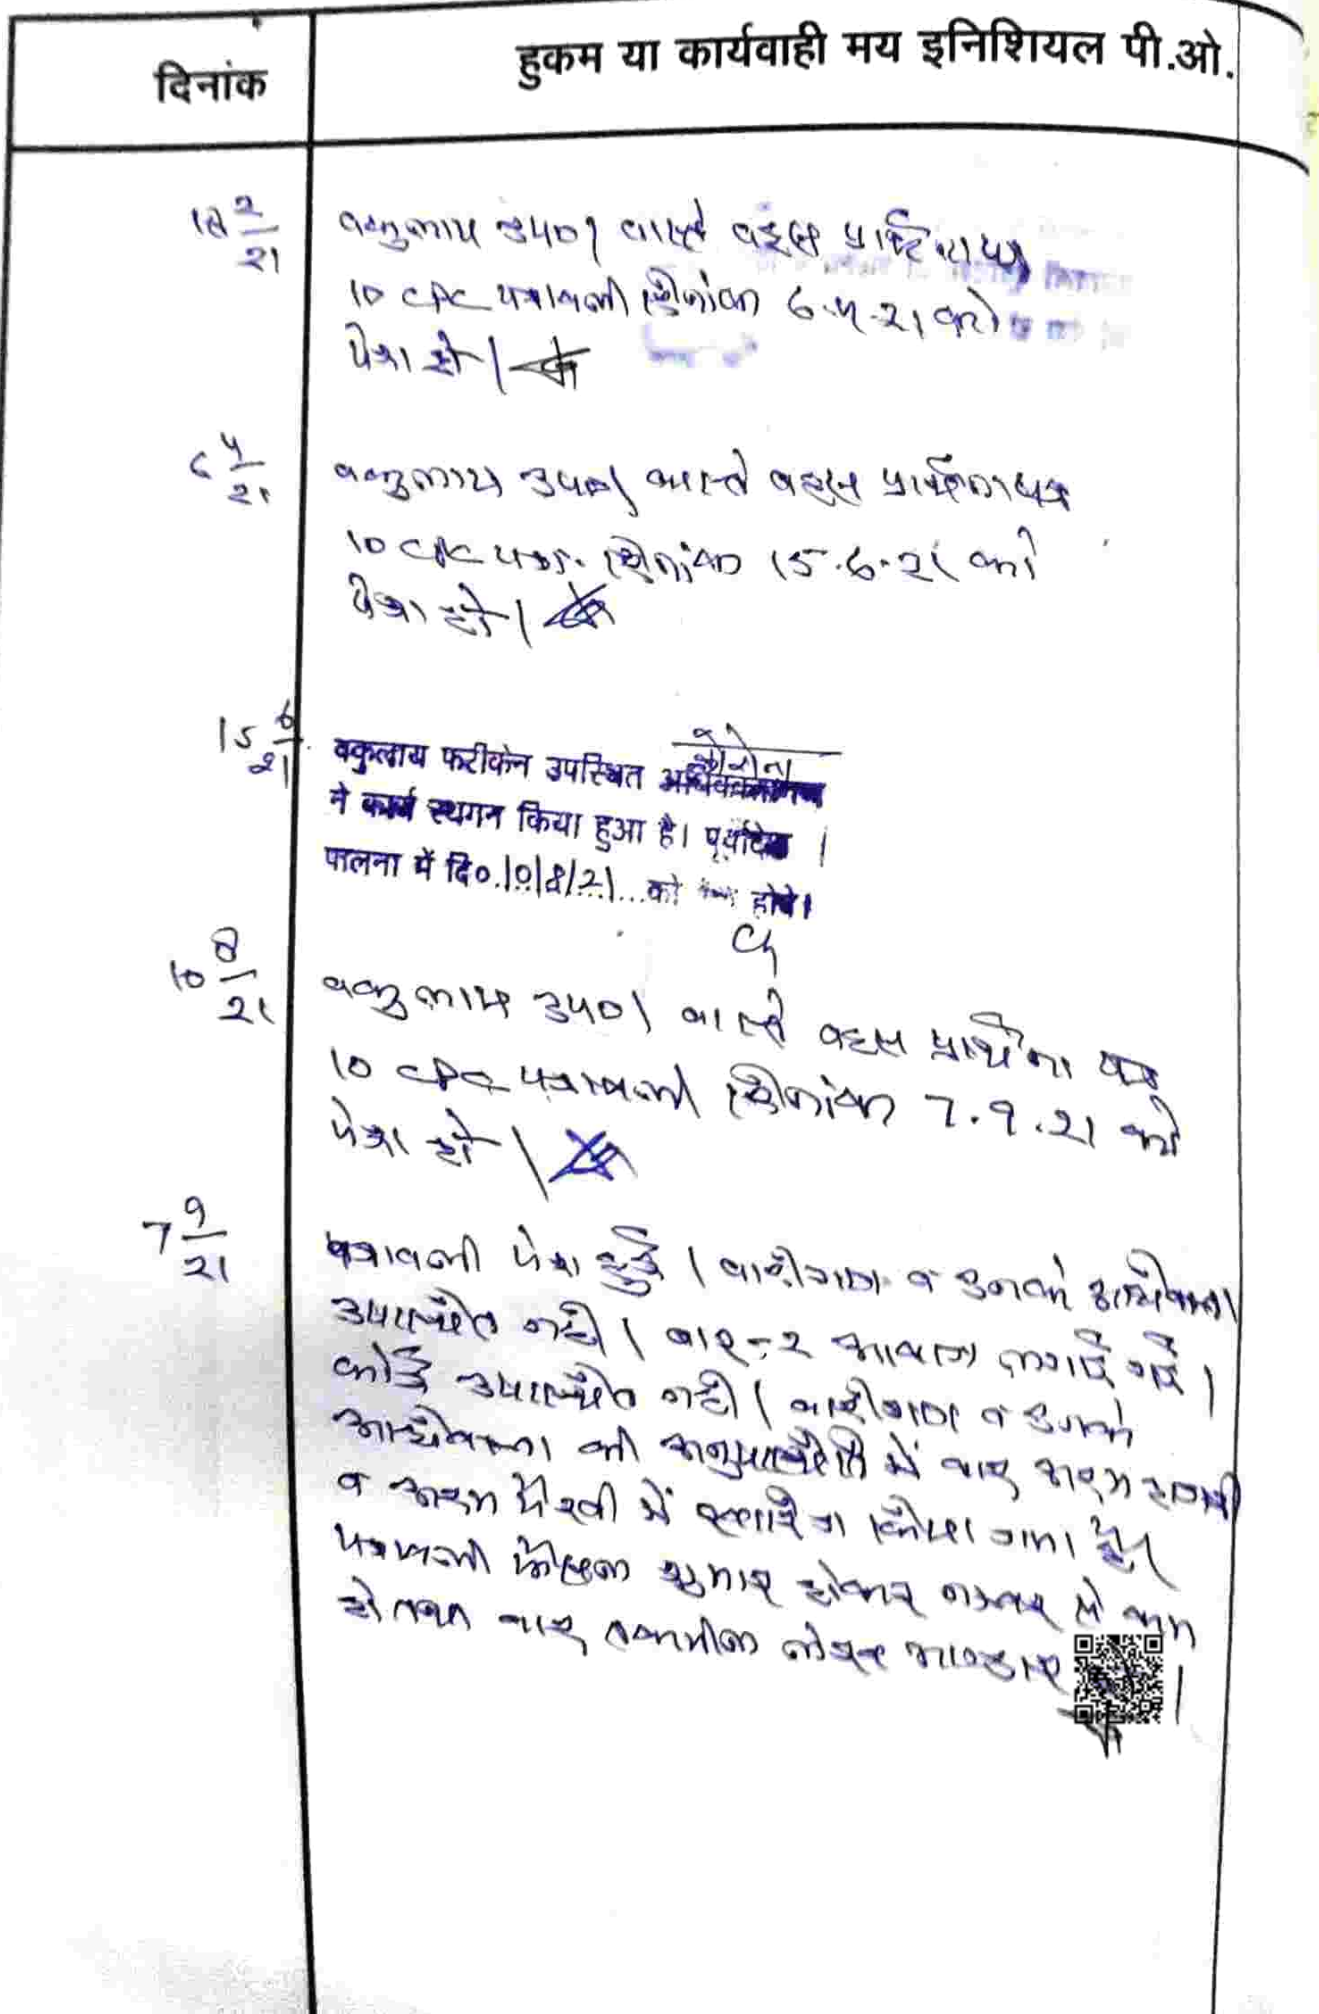 दिनांक
हुकम या कार्यवाही मय इनिशियल पी.ओ.
18 2/21
वकुलाय उप0। वास्ते बहस प्रार्थना पत्र
10 CPC पत्रावली दिनांक 6.4.21 को
पेश हो।
6 4/21
वकुलाय उप0। वास्ते बहस प्रार्थनापत्र
10 CPC पत्रा. दिनांक 15.6.21 को
पेश हो।
15 6/21
कोरोना
वकुलाय फरीकेन उपस्थित
ने कार्य स्थगन किया हुआ है। पूर्वादेश
पालना में दि०.10/8/21...को होवे।
10 8/21
वकुलाय उप0। वास्ते बहस प्रार्थना पत्र
10 CPC पत्रावली दिनांक 7.9.21 को
पेश हो।
7 9/21
पत्रावली पेश हुई। वादीगण व उनके अधिवक्ता
उपस्थित नहीं। बार-2 आवाज लगाई गई।
कोई उपस्थित नहीं। वादीगण व उनके
अधिवक्ता की अनुपस्थिति में वाद अदम हाजरी
व अदम पैरवी में खारिज किया गया है।
पत्रावली फैसल शुमार होकर नम्बर से कम
हो तथा बाद तकमील लेख भण्डार